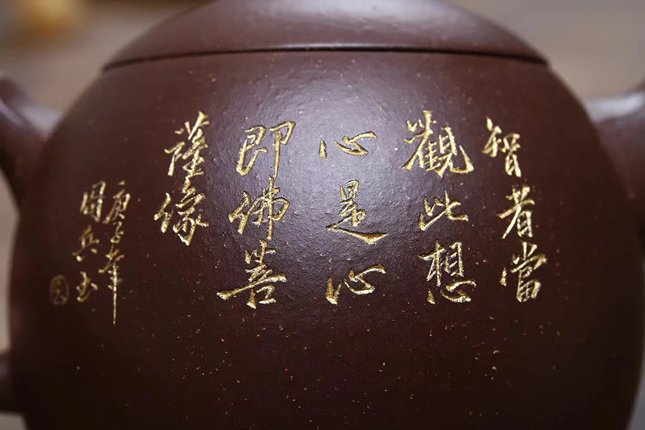 智者當
觀此想
心是心
即佛菩
薩像
庚子年
周兵書